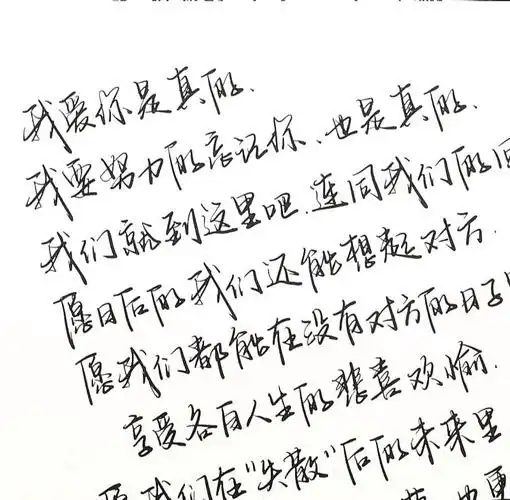 我爱你是真的.
我要努力的忘记你、也是真的.
我们就到这里吧.连同我们的回
愿日后的我们还能想起对方.
愿我们都能在没有对方的日子
享受各自人生的悲喜欢愉.
愿我们在"失散"后的未来里